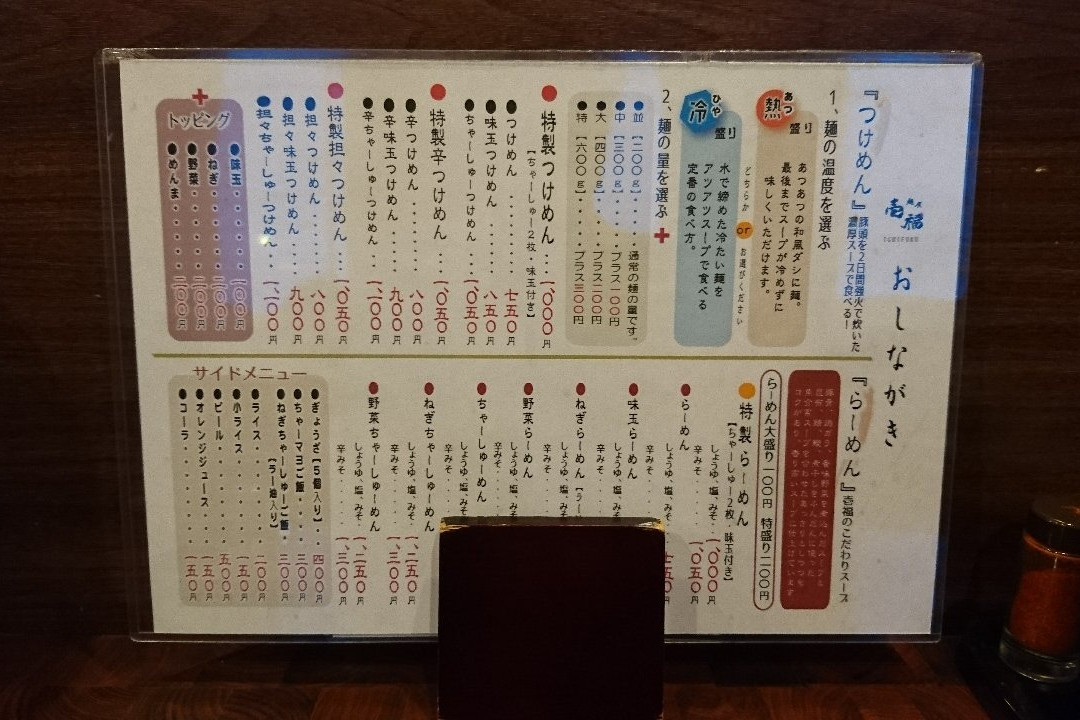 壱福
おしながき
『つけめん』豚頭を2日間強火で炊いた
濃厚スープで食べる!
1、麺の温度を選ぶ
熱あつ盛り
あつあつの和風ダシに麺。
最後までスープが冷めずに
味しくいただけます。
どちらか or お選びください
冷ひや盛り
水で締めた冷たい麺を
アツアツスープで食べる
定番の食べ方。
2、麺の量を選ぶ
●並【二〇〇g】・・・・通常の麺の量です。
●中【三〇〇g】・・・・プラス一〇〇円
●大【四〇〇g】・・・・プラス二〇〇円
●特【六〇〇g】・・・・プラス三〇〇円
●特製つけめん・・一、〇〇〇円
【ちゃーしゅー2枚・味玉付き】
●つけめん・・・・・・七五〇円
●味玉つけめん・・・・八五〇円
●ちゃーしゅーつけめん・・一、〇五〇円
●特製辛つけめん・・一、〇五〇円
●辛つけめん・・・・・八〇〇円
●辛味玉つけめん・・・九〇〇円
●辛ちゃーしゅーつけめん・・一、一〇〇円
●特製担々つけめん・・一、〇五〇円
●担々つけめん・・・・八〇〇円
●担々味玉つけめん・・九〇〇円
●担々ちゃーしゅーつけめん・・一、一〇〇円
+
トッピング
●味玉・・・・・一〇〇円
●ねぎ・・・・・二〇〇円
●野菜・・・・・二〇〇円
●めんま・・・・二〇〇円
『らーめん』壱福のこだわりスープ
らーめん大盛り一〇〇円 特盛り二〇〇円
●特製らーめん
【ちゃーしゅー2枚・味玉付き】
しょうゆ、塩、みそ・・一、〇〇〇円
辛みそ・・・一、〇五〇円
●らーめん
しょうゆ、塩、みそ
辛みそ・・・
●味玉らーめん
しょうゆ、塩、みそ
辛みそ・・・
●ねぎらーめん
しょうゆ、塩、みそ
辛みそ・・・
●野菜らーめん
しょうゆ、塩、みそ
辛みそ・・・
●ちゃーしゅーめん
しょうゆ、塩、みそ
辛みそ・・・
●ねぎちゃーしゅーめん
しょうゆ、塩、みそ・・一、二五〇円
辛みそ・・・一、三〇〇円
●野菜ちゃーしゅーめん
しょうゆ、塩、みそ・・一、二五〇円
辛みそ・・・一、三〇〇円
サイドメニュー
●ぎょうざ【5個入り】・・四〇〇円
●ちゃーマヨご飯・・・三〇〇円
●ねぎちゃーしゅーご飯・三〇〇円
【ラー油入り】
●ライス・・・・・二〇〇円
●小ライス・・・・一五〇円
●ビール・・・・・五〇〇円
●オレンジジュース・・・一五〇円
●コーラ・・・・・一五〇円